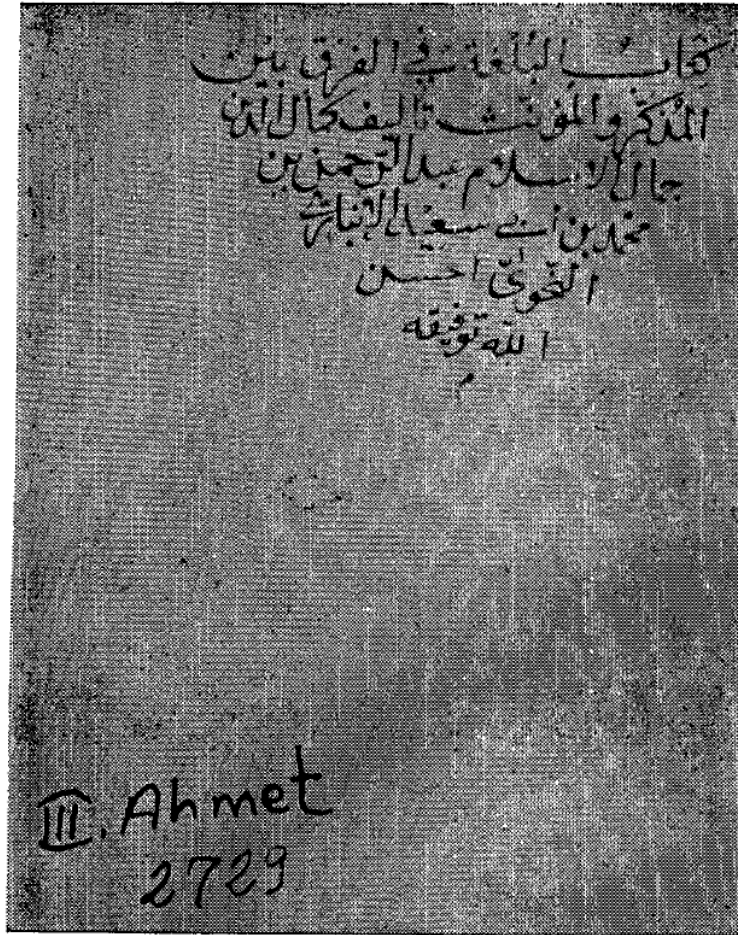 كتاب البُلْغة في الفرق بين
المُذكّر والمؤنّث تأليف كمال الدّين
جمال الاسلام عبد الرّحمن بن
محمد بن أبي سعيد الانباريّ
النّحويّ احسن
الله توفيقه
م
III. Ahmet
2729